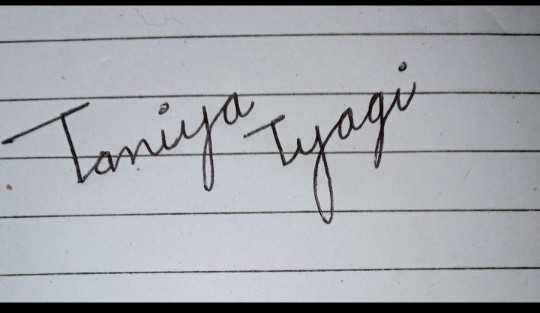 Taniya Tyagi